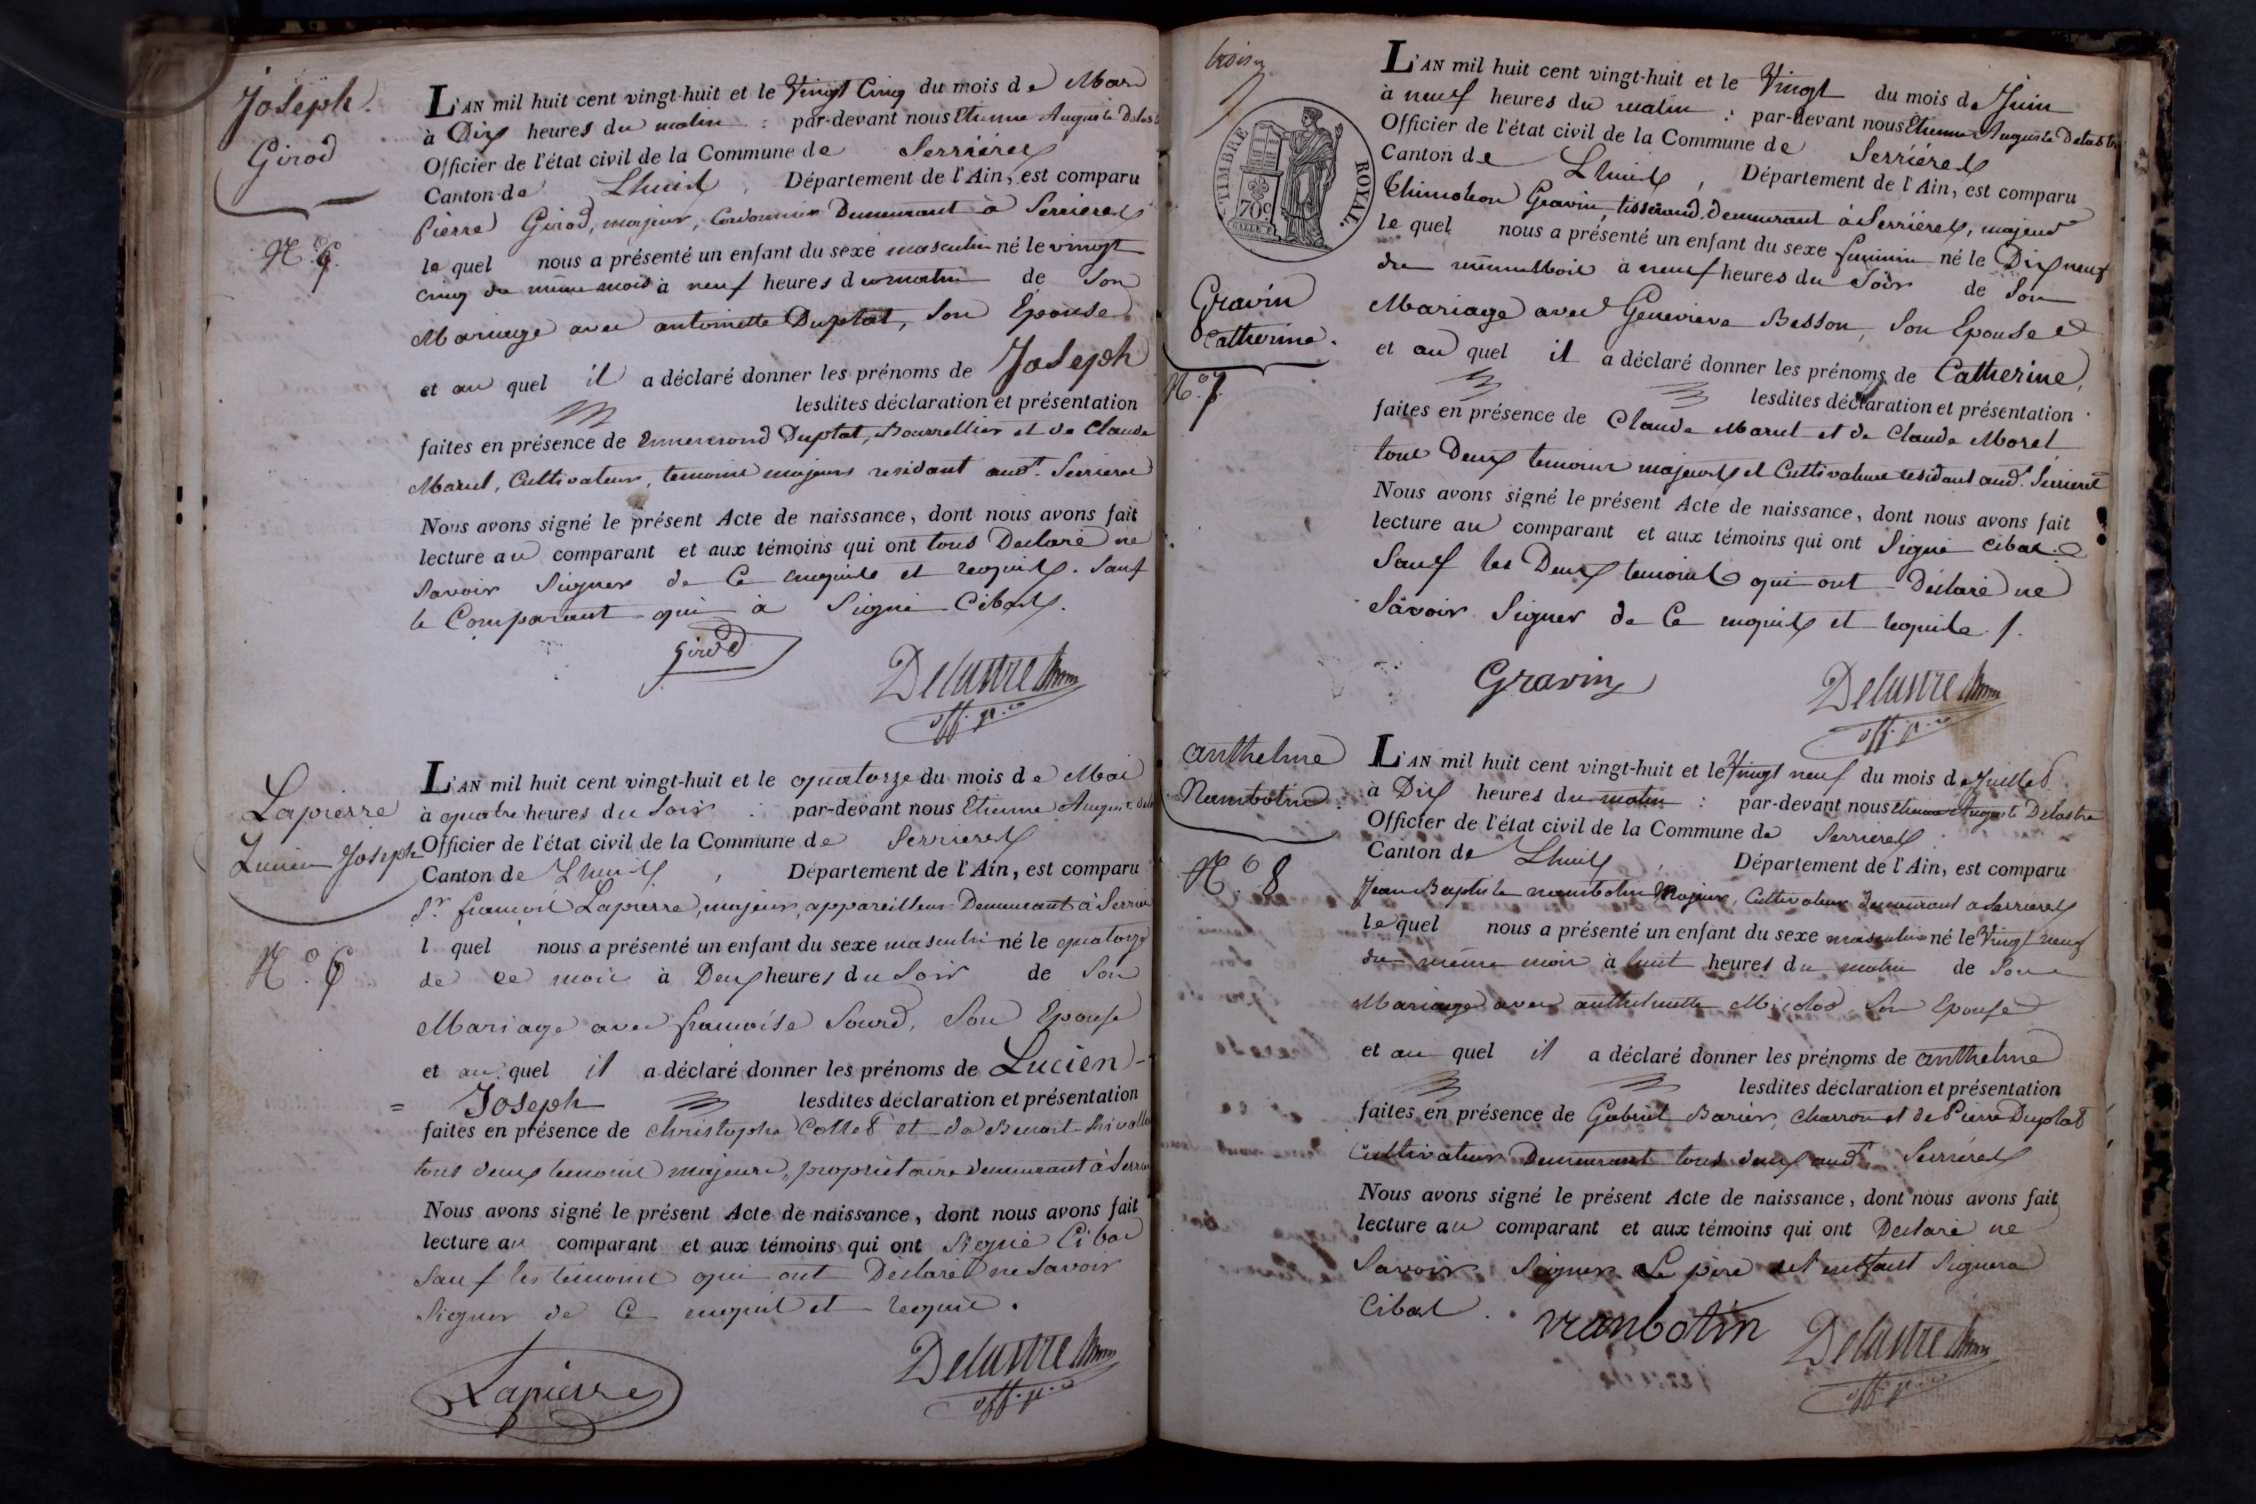 Joseph.
Girod
N.o 5.
L'AN mil huit cent vingt-huit et le Vingt Cinq du mois de Mars
à Dix heures du matin : par-devant nous Etienne Auguste Delast
Officier de l'état civil de la Commune de Serrières
Canton de Lhuis, Département de l'Ain, est comparu
Pierre Girod, majeur, Cordonnier Demeurant à Serrieres
le quel nous a présenté un enfant du sexe masculin né le vingt
cinq du même mois à neuf heures du matin de Son
Mariage avec antoinette Duplat, Son Epouse
et au quel il a déclaré donner les prénoms de Joseph
lesdites déclaration et présentation
faites en présence de Duplat, Bourrellier et de Claude
Marul, Cultivateur, temoins majeurs residant aud.t Serrieres
Nous avons signé le présent Acte de naissance, dont nous avons fait
lecture au comparant et aux témoins qui ont tous Declaré ne
Savoir Signer de Ce enquits et requits. Sauf
le Comparant qui à Signé Cibas.
Girod
Delastre
off. p.
Lapierre
Lucien Joseph
N.o 6
L'AN mil huit cent vingt-huit et le quatorze du mois de Mai
à quatre heures du Soir : par-devant nous Etienne Auguste Dela
Officier de l'état civil de la Commune de Serrieres
Canton de Lhuis, Département de l'Ain, est comparu
S.r françois Lapierre, majeur, appareilleur Demeurant à Serrier
l quel nous a présenté un enfant du sexe masculin né le quatorze
de ce mois à Deux heures du Soir de Son
Mariage avec françoise Sourd, Son Epouse
et au quel il a déclaré donner les prénoms de Lucien -
= Joseph lesdites déclaration et présentation
faites en présence de Christophe Collet et de Benoit
tous deux temoins majeurs, proprietaire Demeurant à Serrier
Nous avons signé le présent Acte de naissance, dont nous avons fait
lecture au comparant et aux témoins qui ont Signé Cibas
Sauf les témoins qui ont Declaré ne Savoir
Signer de Ce enquit et requit.
Lapierre
Delastre
off. p.
trois
TIMBRE ROYAL.
70c
Gravin
Catherine.
N.o 7.
L'AN mil huit cent vingt-huit et le Vingt du mois de Juin
à neuf heures du matin : par-devant nous Etienne Auguste Delastre
Officier de l'état civil de la Commune de Serrières
Canton de Lhuis, Département de l'Ain, est comparu
Thimoleon Gravin, tisserand demeurant à Serrières, majeur
le quel nous a présenté un enfant du sexe feminin né le Dix neuf
du même Mois à neuf heures du Soir de Son
Mariage avec Genevieve Besson, Son Epouse
et au quel il a déclaré donner les prénoms de Catherine,
lesdites déclaration et présentation
faites en présence de Claude Marul et de Claude Morel
tous Deux temoins majeurs et Cultivateurs residant aud.t Serrieres
Nous avons signé le présent Acte de naissance, dont nous avons fait
lecture au comparant et aux témoins qui ont Signé Cibas.
Sauf les Deux temoins qui ont Déclaré ne
Savoir Signer de Ce enquits et requits.
Gravin
Delastre
off. p.
anthelme
Nambotin
N.o 8
L'AN mil huit cent vingt-huit et le Vingt neuf du mois de Juillet
à Dix heures du matin : par-devant nous Etienne Auguste Delastre
Officier de l'état civil de la Commune de Serrieres
Canton de Lhuis, Département de l'Ain, est comparu
Jean Baptiste nambotin Majeur, Cultivateur demeurant a Serrieres
le quel nous a présenté un enfant du sexe masculin né le Vingt neuf
du même mois à huit heures du matin de Son
Mariage avec anthelmette Micolod Son Epouse
et au quel il a déclaré donner les prénoms de anthelme
lesdites déclaration et présentation
faites en présence de Gabriel Barier, Charron et de Pierre Duplat
Cultivateur Demeurant tous deux aud.t Serriéres
Nous avons signé le présent Acte de naissance, dont nous avons fait
lecture au comparant et aux témoins qui ont Declaré ne
Savoir Signer Le père de l'enfant Signera
Cibas.
nanbotin
Delastre
off. p.